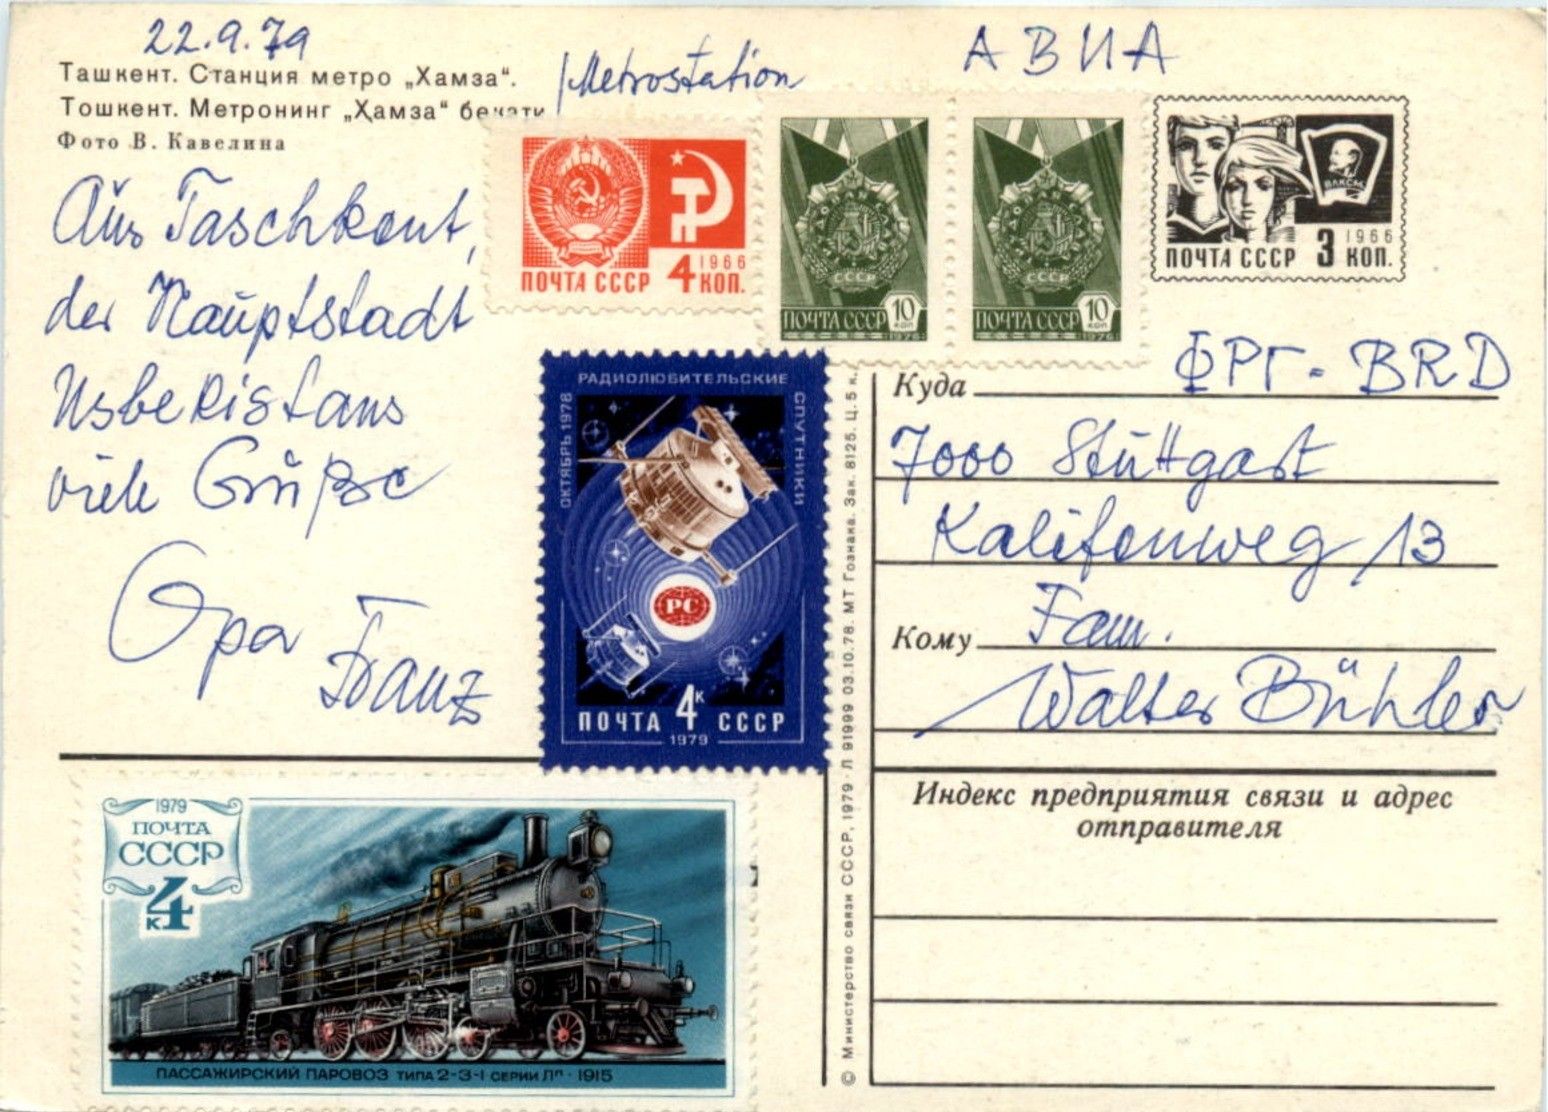 22.9.79
АВИА
Ташкент. Станция метро „Хамза“.
Metrostation
Тошкент. Метронинг „Ҳамза“ бекати
Фото В. Кавелина
Aus Taschkent,
der Hauptstadt
Usbekistans
viele Grüße
Opa Franz
ПОЧТА СССР 4 КОП. 1966
ПОЧТА СССР 10 КОП 1976
ПОЧТА СССР 10 КОП 1976
ВЛКСМ
ПОЧТА СССР 3 КОП. 1966
РАДИОЛЮБИТЕЛЬСКИЕ
СПУТНИКИ
ОКТЯБРЬ 1978
РС
ПОЧТА 4к СССР
1979
Куда ФРГ - BRD
7000 Stuttgart
Kalifenweg 13
Кому Fam.
Walter Bühler
Индекс предприятия связи и адрес
отправителя
© Министерство связи СССР, 1979 · Л 91999 03.10.78. МТ Гознака. Зак. 8125. Ц. 5 к.
1979
ПОЧТА
СССР
4к
ПАССАЖИРСКИЙ ПАРОВОЗ ТИПА 2-3-1 СЕРИИ Лп · 1915